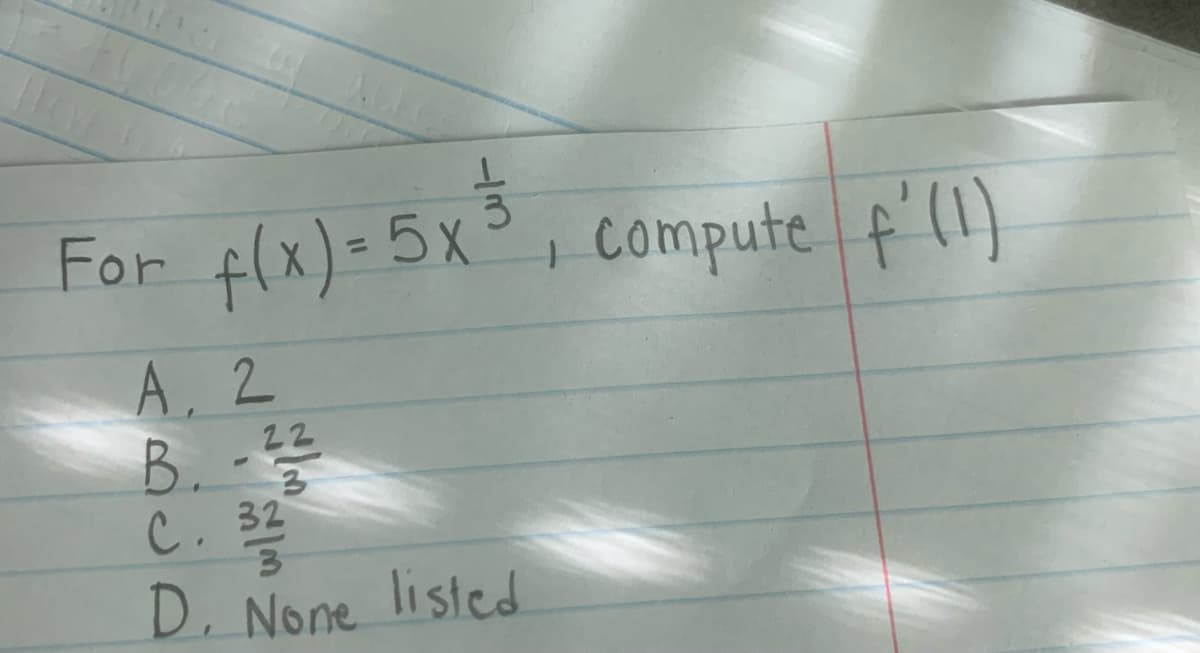 For f(x) = 5x^(1/3), compute f'(1)
A. 2
B. -22/3
C. 32/3
D. None listed